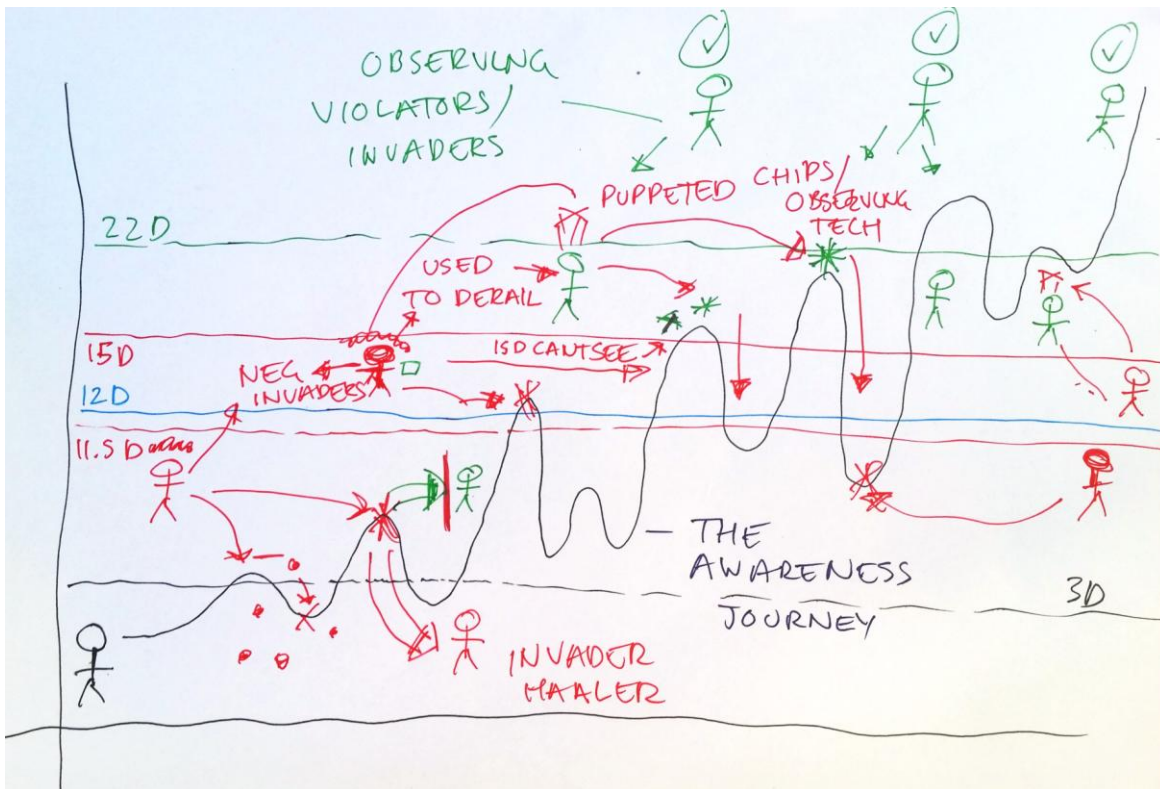 OBSERVING
VIOLATORS/
INVADERS
22D
PUPPETED CHIPS/
OBSERVING
TECH
USED
TO DERAIL
15D
15D CANTSEE
NEG
INVADERS
12D
11.5D
THE
AWARENESS
JOURNEY
3D
INVADER
HAALER